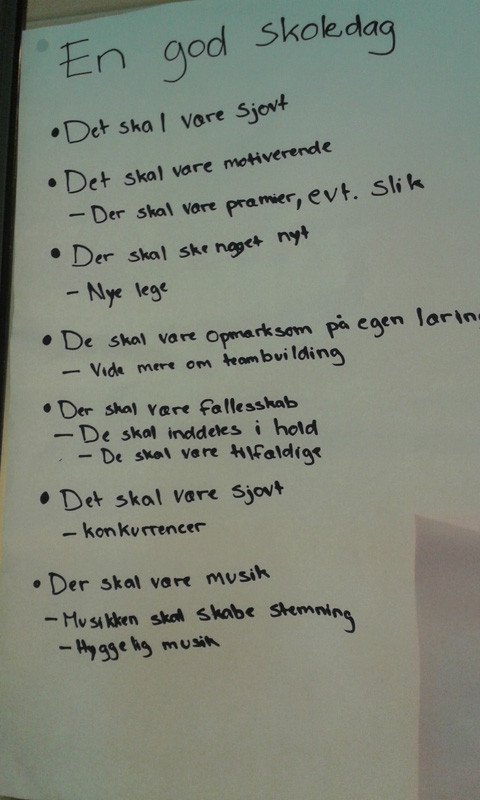 En god skoledag
• Det skal være sjovt
• Det skal være motiverende
– Der skal være præmier, evt. slik
• Der skal ske noget nyt
– Nye lege
• De skal være opmærksom på egen lærin
– Vide mere om teambuilding
• Der skal være fællesskab
– De skal inddeles i hold
– De skal være tilfældige
• Det skal være sjovt
– Konkurrencer
• Der skal være musik
– Musikken skal skabe stemning
– Hyggelig musik